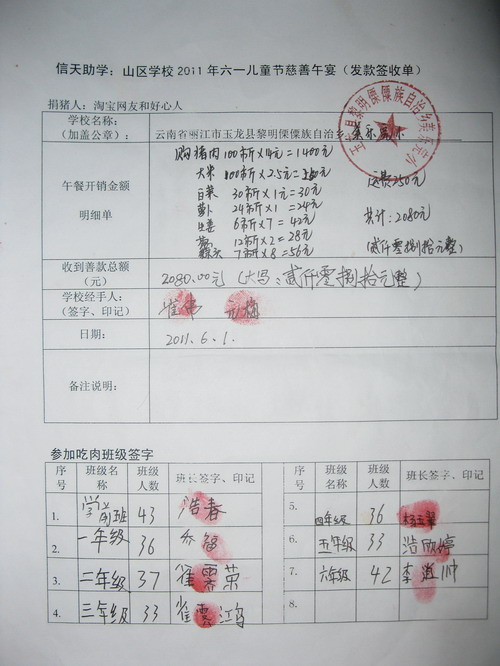 信天助学：山区学校2011年六一儿童节慈善午宴（发款签收单）
捐猪人：淘宝网友和好心人
学校名称：
（加盖公章）：
云南省丽江市玉龙县黎明傈僳族自治乡
午餐开销金额
明细单
购猪肉100市斤×14元=1400元
大米 100市斤×2.5元=250元
白菜 30市斤×1元=30元
萝卜 24市斤×1=24元
生姜 6市斤×7=42元
12市斤×2=28元
7市斤×8=56元
运费250元
共计：2080元
（贰仟零捌拾元整）
收到善款总额
（元）
2080.00元（大写：贰仟零捌拾元整）
学校经手人：
（签字、印记）
日期：
2011.6.1.
备注说明：
参加吃肉班级签字
序号 班级名称 班级人数 班长签字、印记
1. 学前班 43 浩春
2. 一年级 36
3. 二年级 37 雀雯菊
4. 三年级 33 雀雯鸿
序号 班级名称 班级人数 班长签字、印记
5. 四年级 36
6. 五年级 33 浩欣婷
7. 六年级 42 李 帅
8.